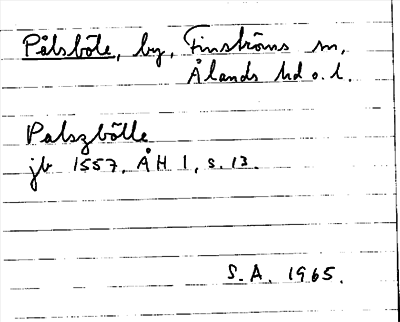 Pålsböle, by, Finströms sn,
Ålands hd o. l.
Palszbölle
jb 1557, ÅH 1, s. 13.
S. A. 1965.